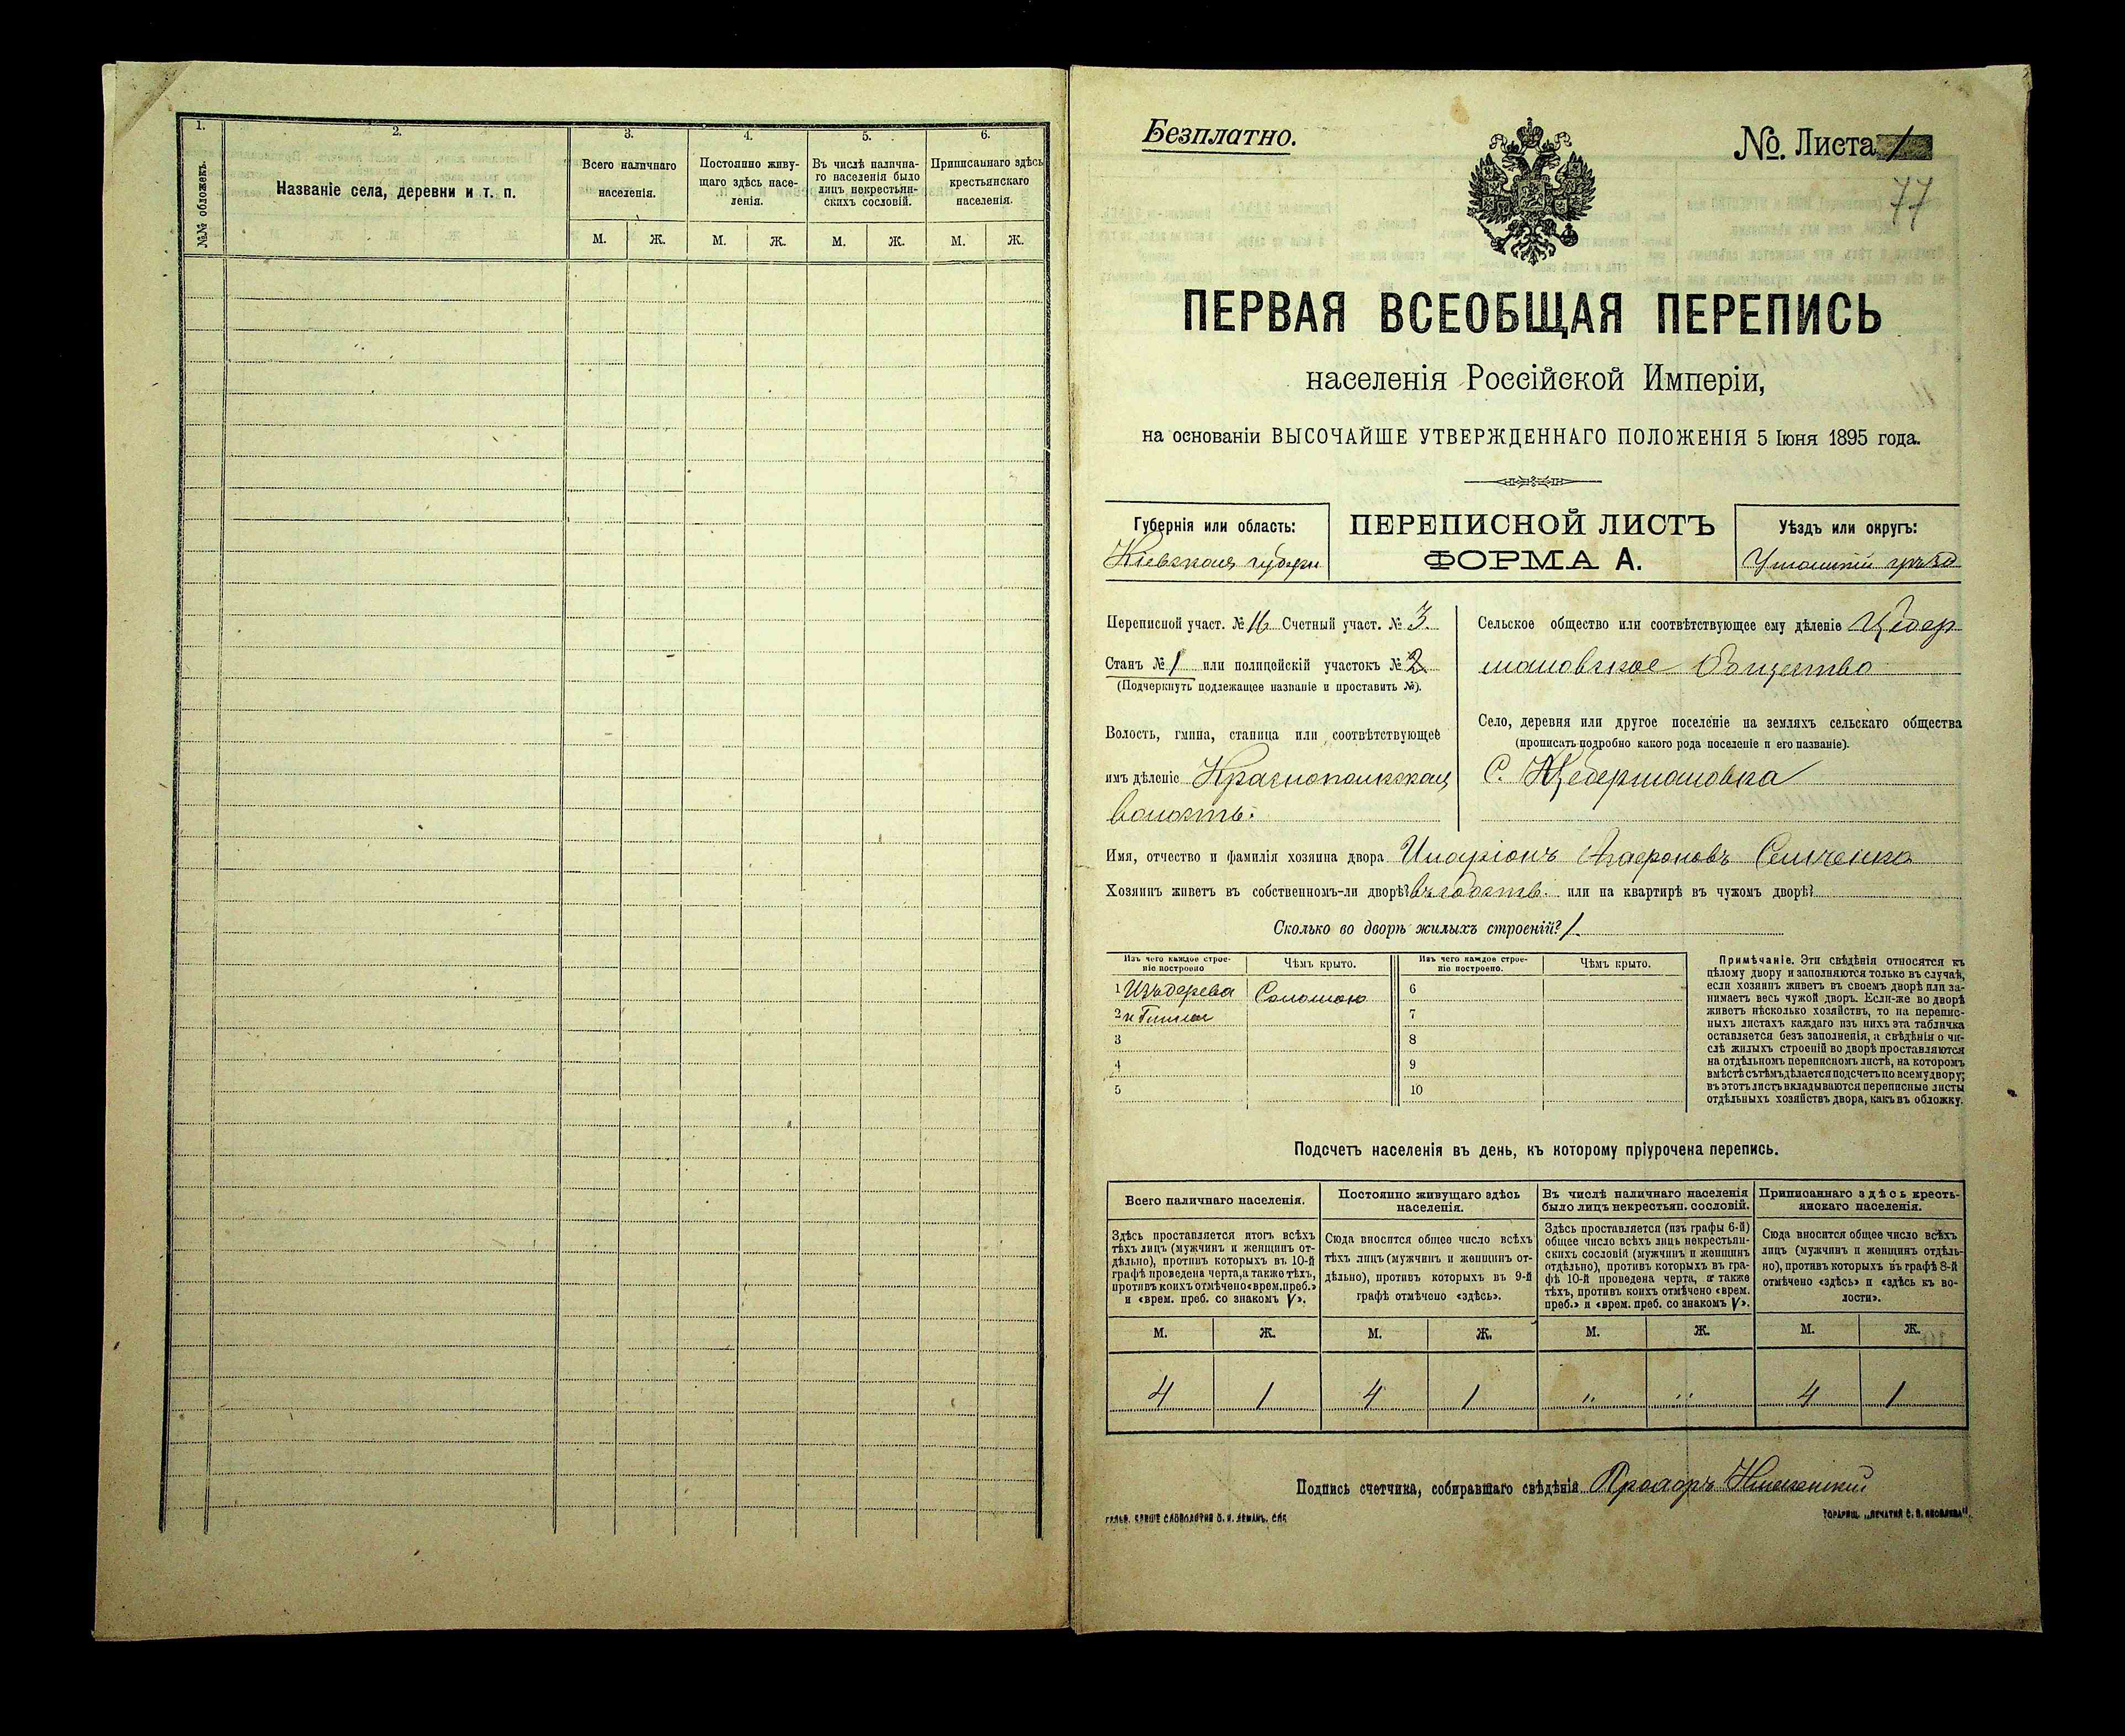 1.
2.
3.
4.
5.
6.
№№ обложекъ.
Названіе села, деревни и т. п.
Всего наличнаго
населенія.
Постоянно живу-
щаго здѣсь насе-
ленія.
Въ числѣ налична-
го населенія было
лицъ некрестьян-
скихъ сословій.
Приписаннаго здѣсь
крестьянскаго
населенія.
М. Ж. М. Ж. М. Ж. М. Ж.
Безплатно.
№ Листа 1
77
ПЕРВАЯ ВСЕОБЩАЯ ПЕРЕПИСЬ
населенія Россійской Имперіи,
на основаніи ВЫСОЧАЙШЕ УТВЕРЖДЕННАГО ПОЛОЖЕНІЯ 5 Іюня 1895 года.
Губернія или область:
Кіевская губерн
ПЕРЕПИСНОЙ ЛИСТЪ
ФОРМА А.
Уѣздъ или округъ:
Уманскій уѣзд
Переписной участ. № 16 Счетный участ. № 3.
Станъ № 1 или полицейскій участокъ № 2
(Подчеркнуть подлежащее названіе и проставить №).
Волость, гмина, станица или соотвѣтствующее
имъ дѣленіе Краснопольская
волость.
Сельское общество или соотвѣтствующее ему дѣленіе Цебер
мановское Общество
Село, деревня или другое поселеніе на земляхъ сельскаго общества
(прописать подробно какого рода поселеніе и его названіе).
С. Цебермановка
Имя, отчество и фамилія хозяина двора Иларіонъ Агафоновъ Семченко
Хозяинъ живетъ въ собственномъ-ли дворѣ? или на квартирѣ въ чужомъ дворѣ?
Сколько во дворѣ жилыхъ строеній? 1
Изъ чего каждое строе-
ніе построено
Чѣмъ крыто.
Изъ чего каждое строе-
ніе построено.
Чѣмъ крыто.
1 Изъ дерева Соломою
2 и Глины
3
4
5
6
7
8
9
10
Примѣчаніе. Эти свѣдѣнія относятся къ
цѣлому двору и заполняются только въ случаѣ,
если хозяинъ живетъ въ своемъ дворѣ или за-
нимаетъ весь чужой дворъ. Если-же во дворѣ
живетъ нѣсколько хозяйствъ, то на перепис-
ныхъ листахъ каждаго изъ нихъ эта табличка
оставляется безъ заполненія, а свѣдѣнія о чи-
слѣ жилыхъ строеній во дворѣ проставляются
на отдѣльномъ переписномъ листѣ, на которомъ
вмѣстѣ съ тѣмъ дѣлается подсчетъ по всему двору;
въ этотъ листъ вкладываются переписные листы
отдѣльныхъ хозяйствъ двора, какъ въ обложку.
Подсчетъ населенія въ день, къ которому пріурочена перепись.
Всего наличнаго населенія.
Здѣсь проставляется итогъ всѣхъ
тѣхъ лицъ (мужчинъ и женщинъ от-
дѣльно), противъ которыхъ въ 10-й
графѣ проведена черта, а также тѣхъ,
противъ коихъ отмѣчено «врем. преб.»
и «врем. преб. со знакомъ V».
Постоянно живущаго здѣсь
населенія.
Сюда вносится общее число всѣхъ
тѣхъ лицъ (мужчинъ и женщинъ от-
дѣльно), противъ которыхъ въ 9-й
графѣ отмѣчено «здѣсь».
Въ числѣ наличнаго населенія
было лицъ некрестьян. сословій.
Здѣсь проставляется (изъ графы 6-й)
общее число всѣхъ лицъ некрестьян-
скихъ сословій (мужчинъ и женщинъ
отдѣльно), противъ которыхъ въ гра-
фѣ 10-й проведена черта, а также
тѣхъ, противъ коихъ отмѣчено «врем.
преб.» и «врем. преб. со знакомъ V».
Приписаннаго здѣсь кресть-
янскаго населенія.
Сюда вносится общее число всѣхъ
лицъ (мужчинъ и женщинъ отдѣль-
но), противъ которыхъ въ графѣ 8-й
отмѣчено «здѣсь» и «здѣсь къ во-
лости».
М. Ж. М. Ж. М. Ж. М. Ж.
4 1 4 1 " " 4 1
Подпись счетчика, собиравшаго свѣдѣнія Прохоръ
ТОВАРИЩ. „ПЕЧАТНЯ С. П. ЯКОВЛЕВА".